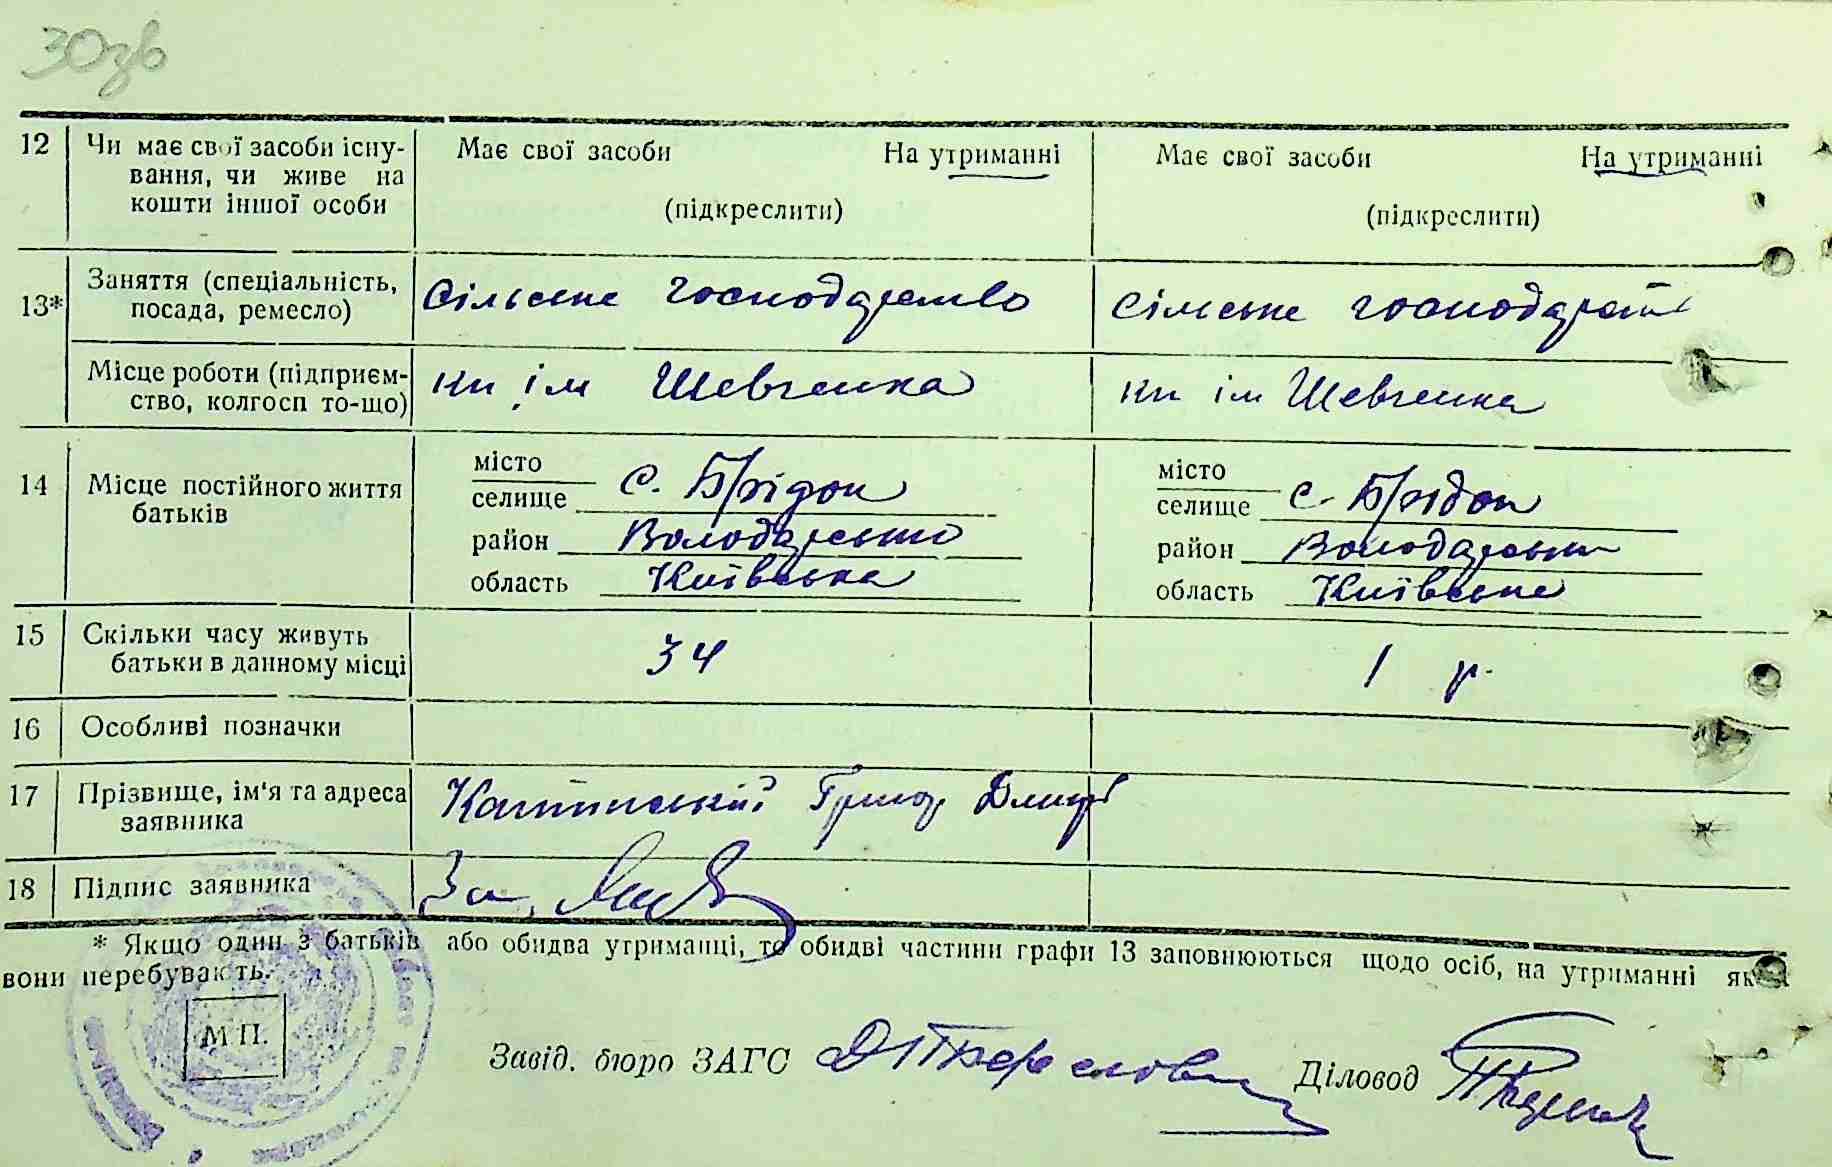 30зв
12 Чи має свої засоби існу- Має свої засоби На утриманні Має свої засоби На утриманні
вання, чи живе на
кошти іншої особи (підкреслити) (підкреслити)
13* Заняття (спеціальність, сільське господарство сільське господарст
посада, ремесло)
Місце роботи (підприєм- кп ім Шевченка кп ім Шевченка
ство, колгосп то-що)
14 Місце постійного життя місто місто
батьків селище с. Брідок селище с. Брідок
район Володарського район Володарськи
область Київська область Київське
15 Скільки часу живуть 34 1 р.
батьки в данному місці
16 Особливі позначки
17 Прізвище, ім'я та адреса
заявника
18 Підпис заявника За
* Якщо один з батьків або обидва утриманці, то обидві частини графи 13 заповнюються щодо осіб, на утриманні як
вони перебувають.
М П.
Завід. бюро ЗАГС Діловод